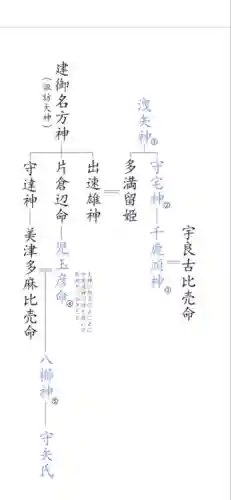 宇良古比売命
洩矢神①
守宅神②
千鹿頭神③
多満留姫
建御名方神
(諏訪大神)
出速雄神
片倉辺命
児玉彦命④
守達神
美津多麻比売命
八櫛神⑤
守矢氏